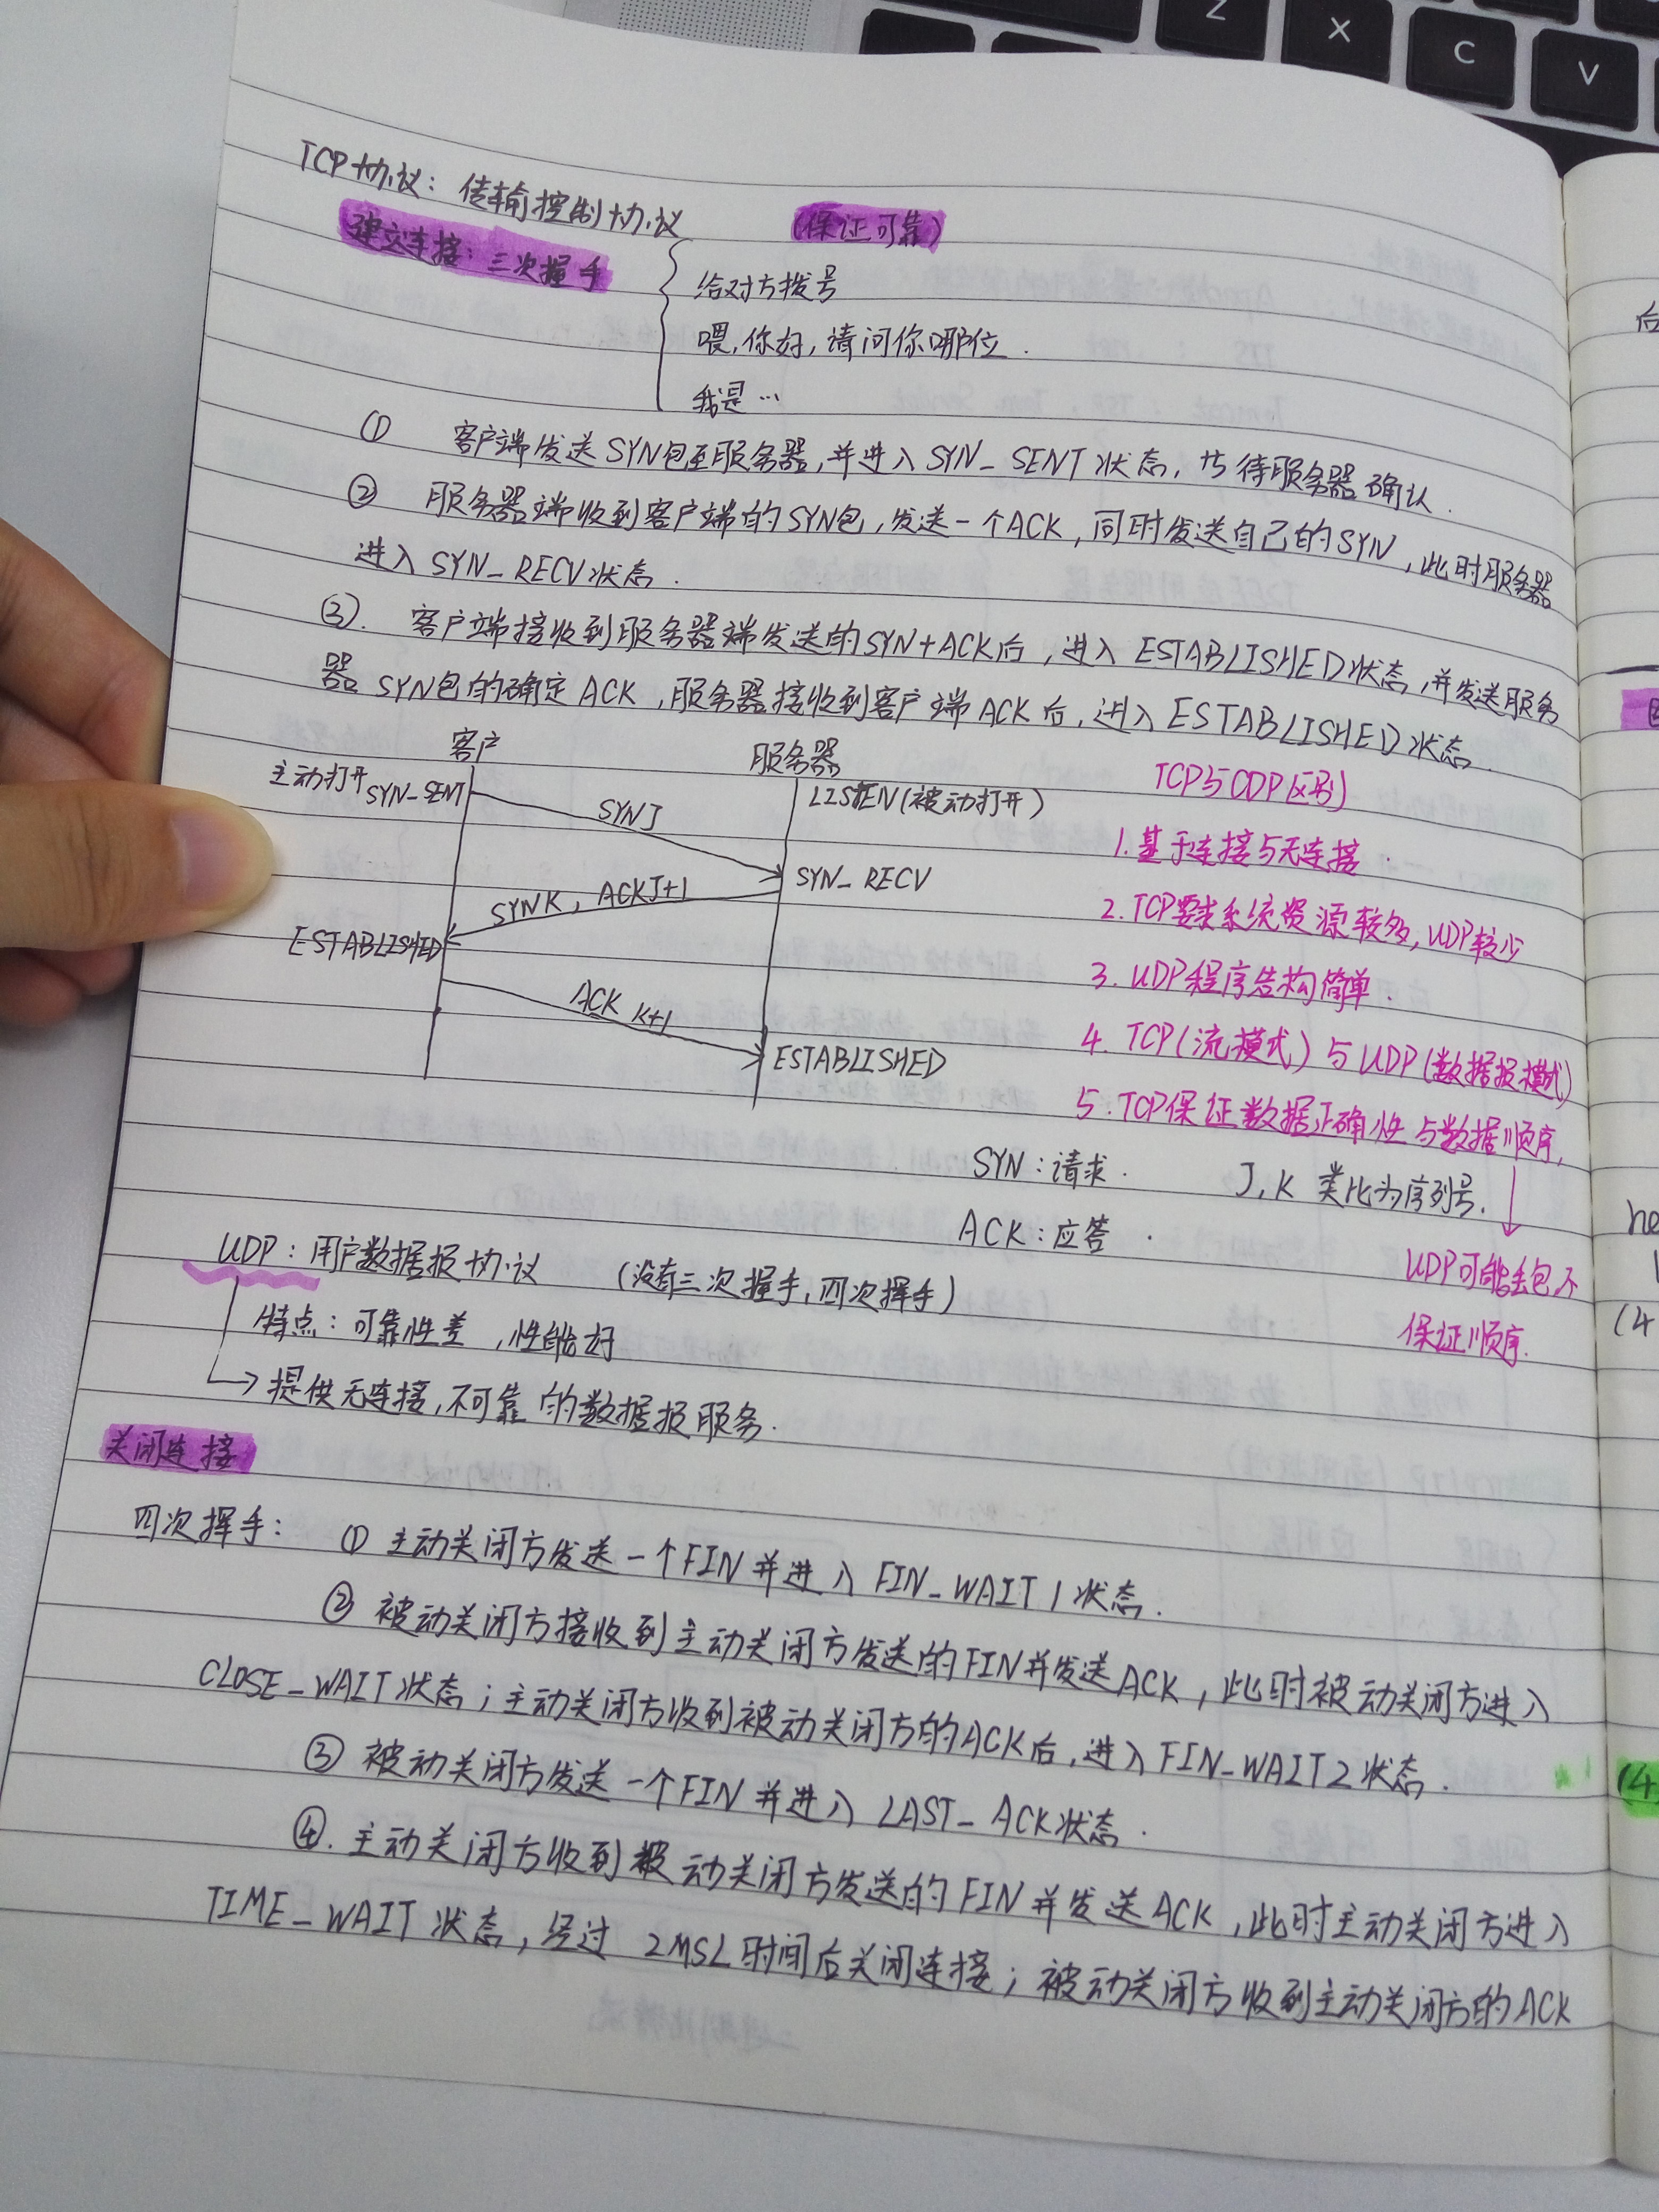 Z
X
C
V
TCP协议：传输控制协议 (保证可靠)
建立连接：三次握手
给对方拨号
喂,你好,请问你哪位.
我是…
① 客户端发送SYN包至服务器,并进入SYN_SENT状态,等待服务器确认.
② 服务器端收到客户端的SYN包,发送一个ACK,同时发送自己的SYN,此时服务器
进入SYN_RECV状态.
③. 客户端接收到服务器端发送的SYN+ACK后,进入ESTABLISHED状态,并发送服务
器SYN包的确定ACK,服务器接收到客户端ACK后,进入ESTABLISHED状态.
客户
服务器
主动打开 SYN_SENT
LISTEN(被动打开)
SYNJ
SYN_RECV
SYNK, ACKJ+1
ESTABLISHED
ACK K+1
ESTABLISHED
TCP与UDP区别
1.基于连接与无连接.
2.TCP要求系统资源较多,UDP较少
3.UDP程序结构简单.
4.TCP(流模式)与UDP(数据报模式)
5.TCP保证数据正确性与数据顺序,
UDP可能丢包,不
保证顺序.
SYN：请求. J,K 类比为序列号.
ACK：应答.
UDP：用户数据报协议 (没有三次握手,四次挥手)
特点：可靠性差,性能好
提供无连接,不可靠的数据报服务.
关闭连接
四次挥手： ① 主动关闭方发送一个FIN并进入FIN_WAIT1状态.
② 被动关闭方接收到主动关闭方发送的FIN并发送ACK,此时被动关闭方进入
CLOSE_WAIT状态；主动关闭方收到被动关闭方的ACK后,进入FIN_WAIT2状态.
③ 被动关闭方发送一个FIN并进入LAST_ACK状态.
④. 主动关闭方收到被动关闭方发送的FIN并发送ACK,此时主动关闭方进入
TIME_WAIT状态,经过2MSL时间后关闭连接；被动关闭方收到主动关闭方的ACK
后
he
(4
(4